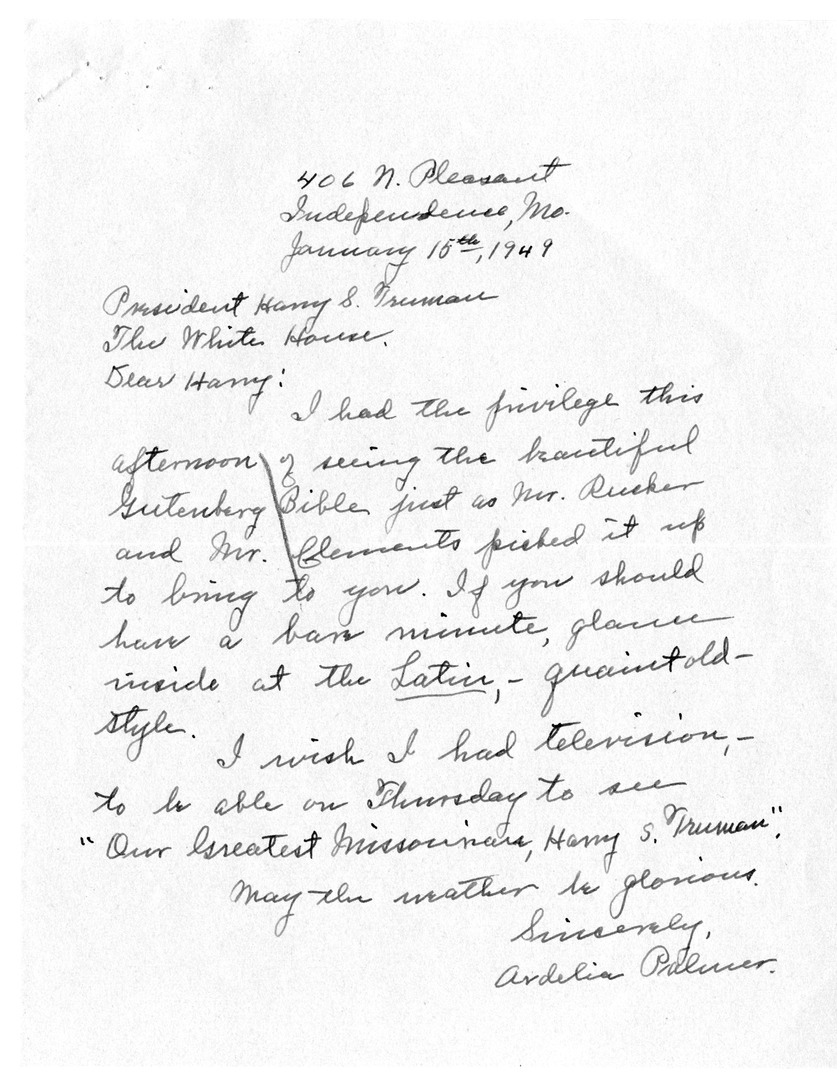 406 N. Pleasant
Independence, Mo.
January 15th, 1949
President Harry S. Truman
The White House.
Dear Harry:
I had the privilege this
afternoon of seeing the beautiful
Gutenberg Bible just as Mr. Rucker
and Mr. Clements picked it up
to bring to you. If you should
have a bare minute, glance
inside at the Latin, - quaint old-
style.
I wish I had television, -
to be able on Thursday to see
"Our Greatest Missourian, Harry S. Truman".
May the weather be glorious.
Sincerely,
Ardelia Palmer.